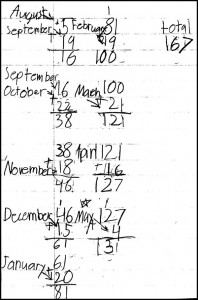 August 5 February 81 total
September + 19 + 19 167
16 100
September
October 16 March 100
+ 22 + 21
38 121
38 April 121
November + 18 + 46
46 127
December 46 May 127
+ 15 + 4
61 131
January 61
+ 20
81